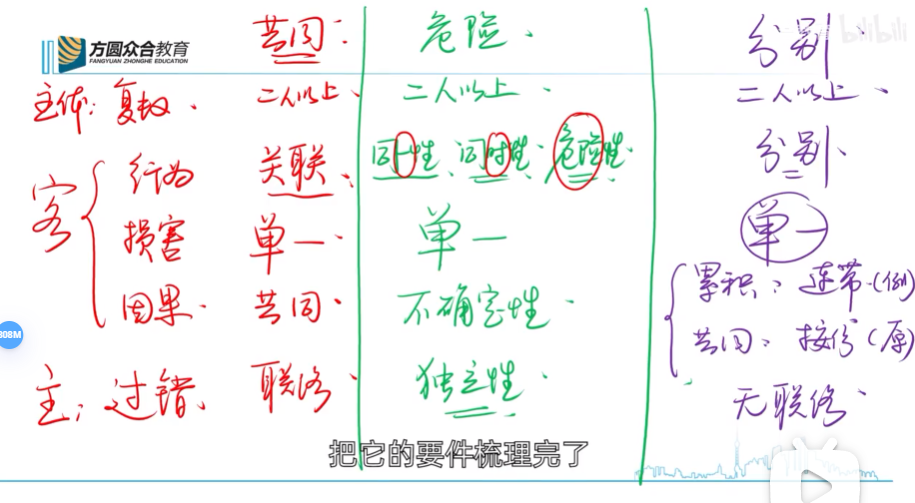 方圆众合教育
FANGYUAN ZHONGHE EDUCATION
bilibili
共同: 危险. 分别.
主体: 复数. 二人以上. 二人以上. 二人以上.
客 行为 关联. 同一性. 同时性. 危险性. 分别.
损害 单一. 单一 单一
因果. 共同. 不确定性. 累积: 连带.(例)
共同: 按份(原)
主: 过错. 联络. 独立性. 无联络.
808M
把它的要件梳理完了